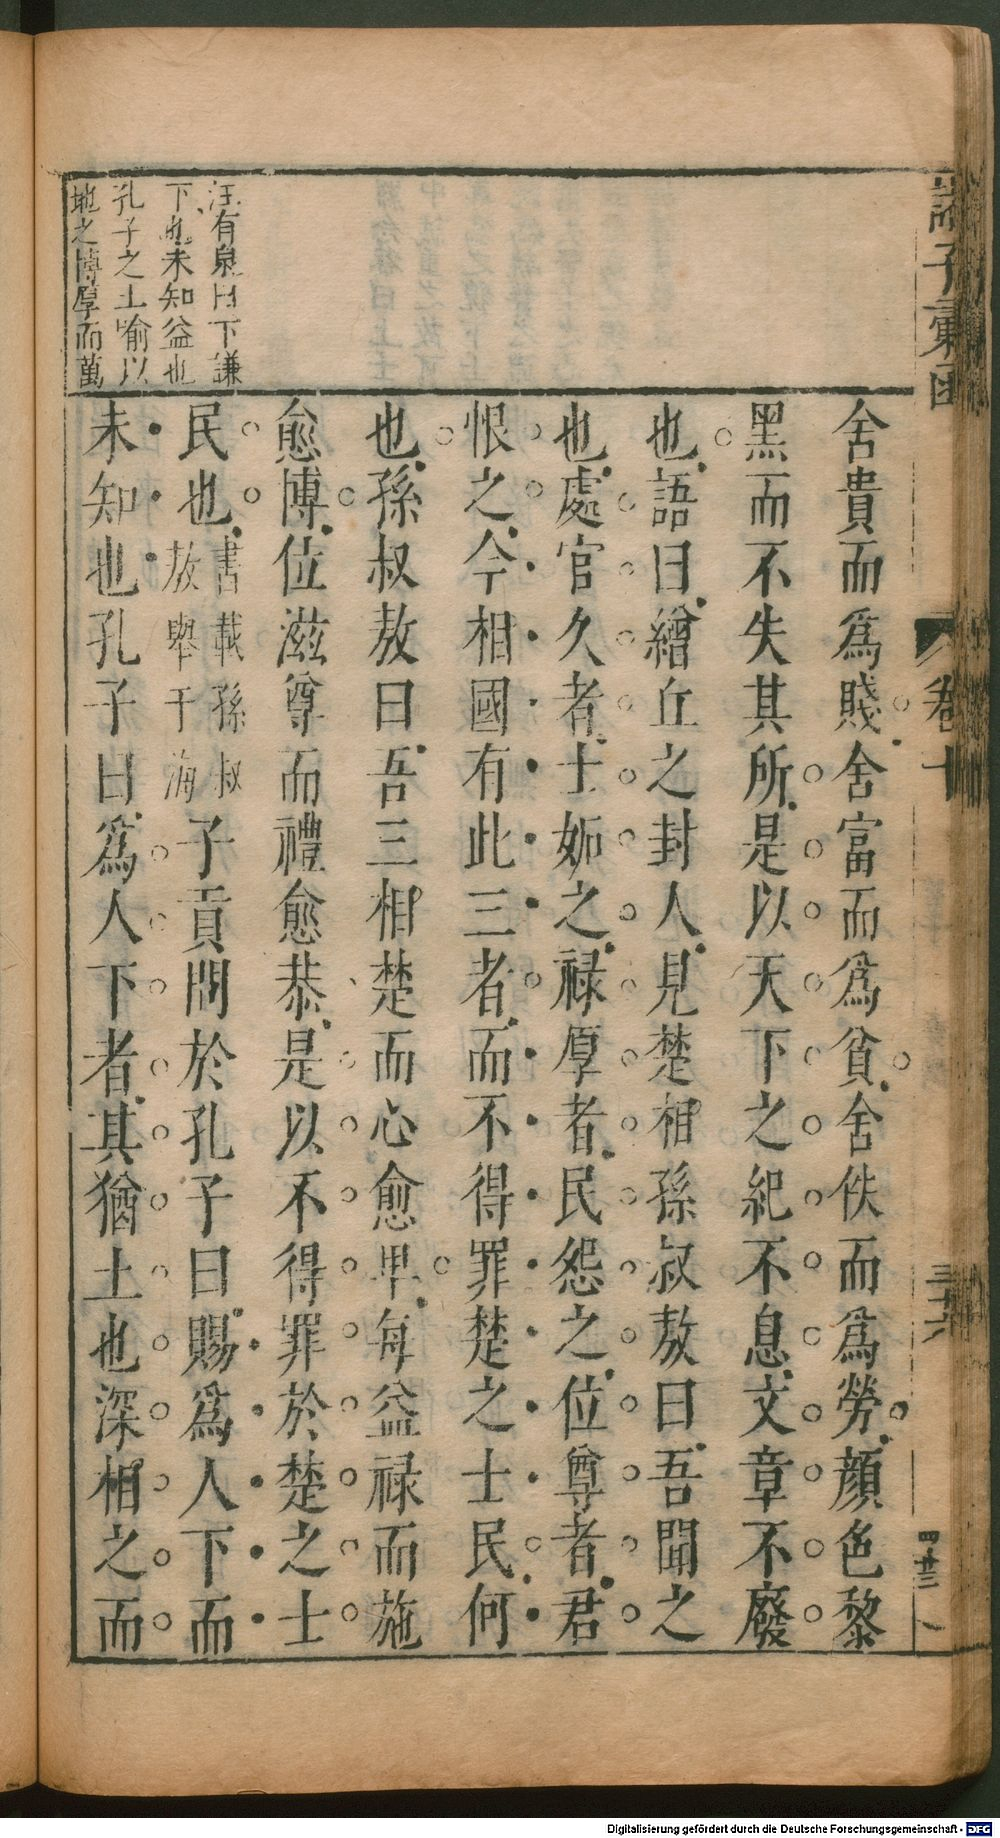 諸子彙函
卷十
三十六
四廿三
汪有泉曰下謙
下也未知益也
孔子之土喻以
地之博厚而萬
舍貴而爲賤舍富而爲貧舍佚而爲勞顔色黎
黑而不失其所是以天下之紀不息文章不廢
也語曰繒丘之封人見楚相孫叔敖曰吾聞之
也處官久者士妬之祿厚者民怨之位尊者君
恨之今相國有此三者而不得罪楚之士民何
也孫叔敖曰吾三相楚而心愈卑每益祿而施
愈博位滋尊而禮愈恭是以不得罪於楚之士
民也書載孫叔敖舉于海子貢問於孔子曰賜爲人下而
未知也孔子曰爲人下者其猶土也深相之而
Digitalisierung gefördert durch die Deutsche Forschungsgemeinschaft - DFG